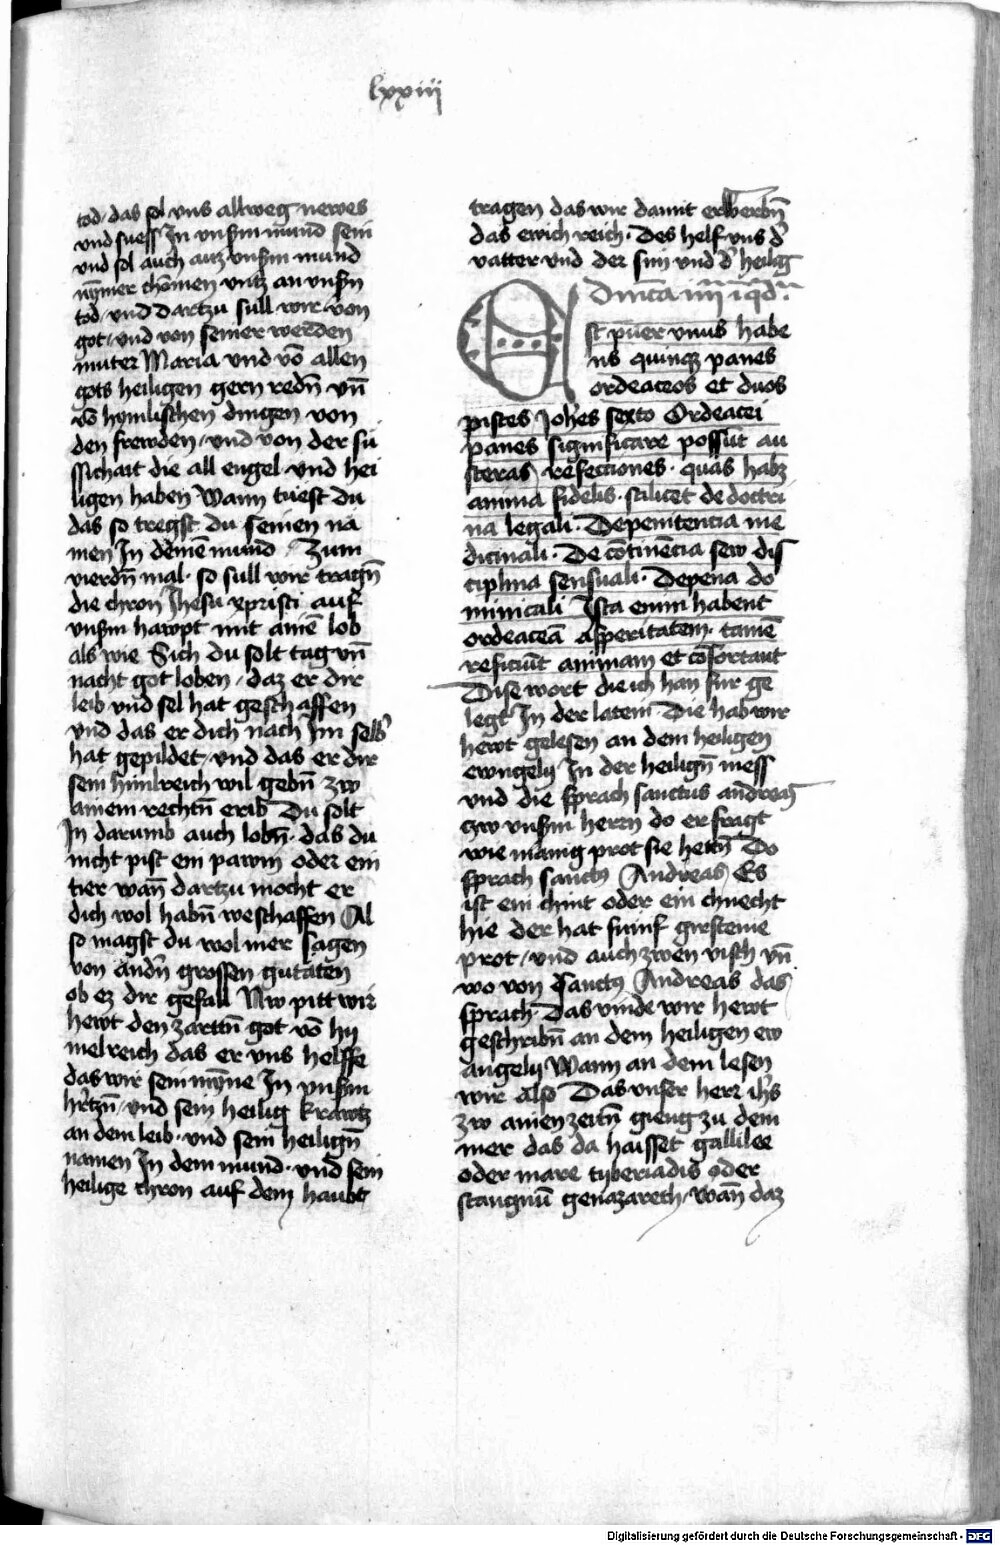 lxxiij
tod das sol vns allweg newes
vnd suess In vnserm mund sein
vnd sol auch auz vnserm mund
nymer chōmen vntz an vnsern
tod vnd dartzu sull wir von
got vnd von seiner werden
muter Maria vnd vō allen
gots heiligen gern redn̄ vn̄
vō hymlischen dingen von
den frewden vnd von der sü
ssichait die all engel vnd hei
ligen haben Wann tuest du
das so tregst du seinen na
men In deinē mund Zum
vierdn̄ mal · so sull wir tragn̄
die chron Jhesu xpristi auf
vnserm hawpt mit ainē lob
als wie Sich du solt tag vn̄
nacht got loben daz er dir
leib vnd sel hat geschaffen
vnd das er dich nach Im selb
hat gepildet vnd das er dir
sein himlreich wil gebn̄ zw
ainem rechtn̄ erib Du solt
In darumb auch lobn̄ · das du
nicht pist ein pawm oder ein
tier wan̄ dartzu mocht er
dich wol habn̄ weschaffen Al
so magst du wol mer sagen
von andn̄ grossen gutaten
ob ez dir gefall Nw pitt wir
hewt den zarttn̄ got vō hy
melreich das er vns helffe
das wir sein mynne In vnserm
hertzn̄ vnd sein heilig krawtz
an dem leib · vnd sein heilign̄
namen In dem mund · vnd sein
heilige chron auf dem haubt
tragen das wir damit erwerbn̄
das ewich reich · Des helf vns d'
vatter vnd der sun vnd d' heilig
Dnīca iiij īqd.
Est puer vnus habe
ns quinque panes
ordeaceos et duos
pisces Johes sexto Ordeacei
panes significare possūt au
steras refectiones · quas habz
anima fidelis · scilicet de doctri
na legali · De penitencia me
dicinali · De cōtinēcia sew dis
ciplina sensuali · De pena do
minicali Ista enim habent
ordeaceā asperitatem · tamē
reficiūt animam et cōfortant
Dise wort die ich han fur ge
legt In der latein Die hab wir
hewt gelesen an dem heiligen
ewngelij In der heilign̄ mess
vnd die sprach sanctus andreas
czw vnserm herrn do er fragt
wie manig prot sie hettn̄ Do
sprach sanctus Andreas Es
ist ein chint oder ein chnecht
hie der hat fumf girsteine
prot vnd auch zwen visch vn̄
wo von Sanctus Andreas das
sprach Das vinde wir hewt
geschribn̄ an dem heiligen ew
angelij Wann an dem lesen
wir also Das vnser herr ihs
zw ainen zeitn̄ gieng zu dem
mer das da haisset gallilee
oder mare tyberiadis oder
stangnū genazareth wan̄ daz
Digitalisierung gefördert durch die Deutsche Forschungsgemeinschaft - DFG